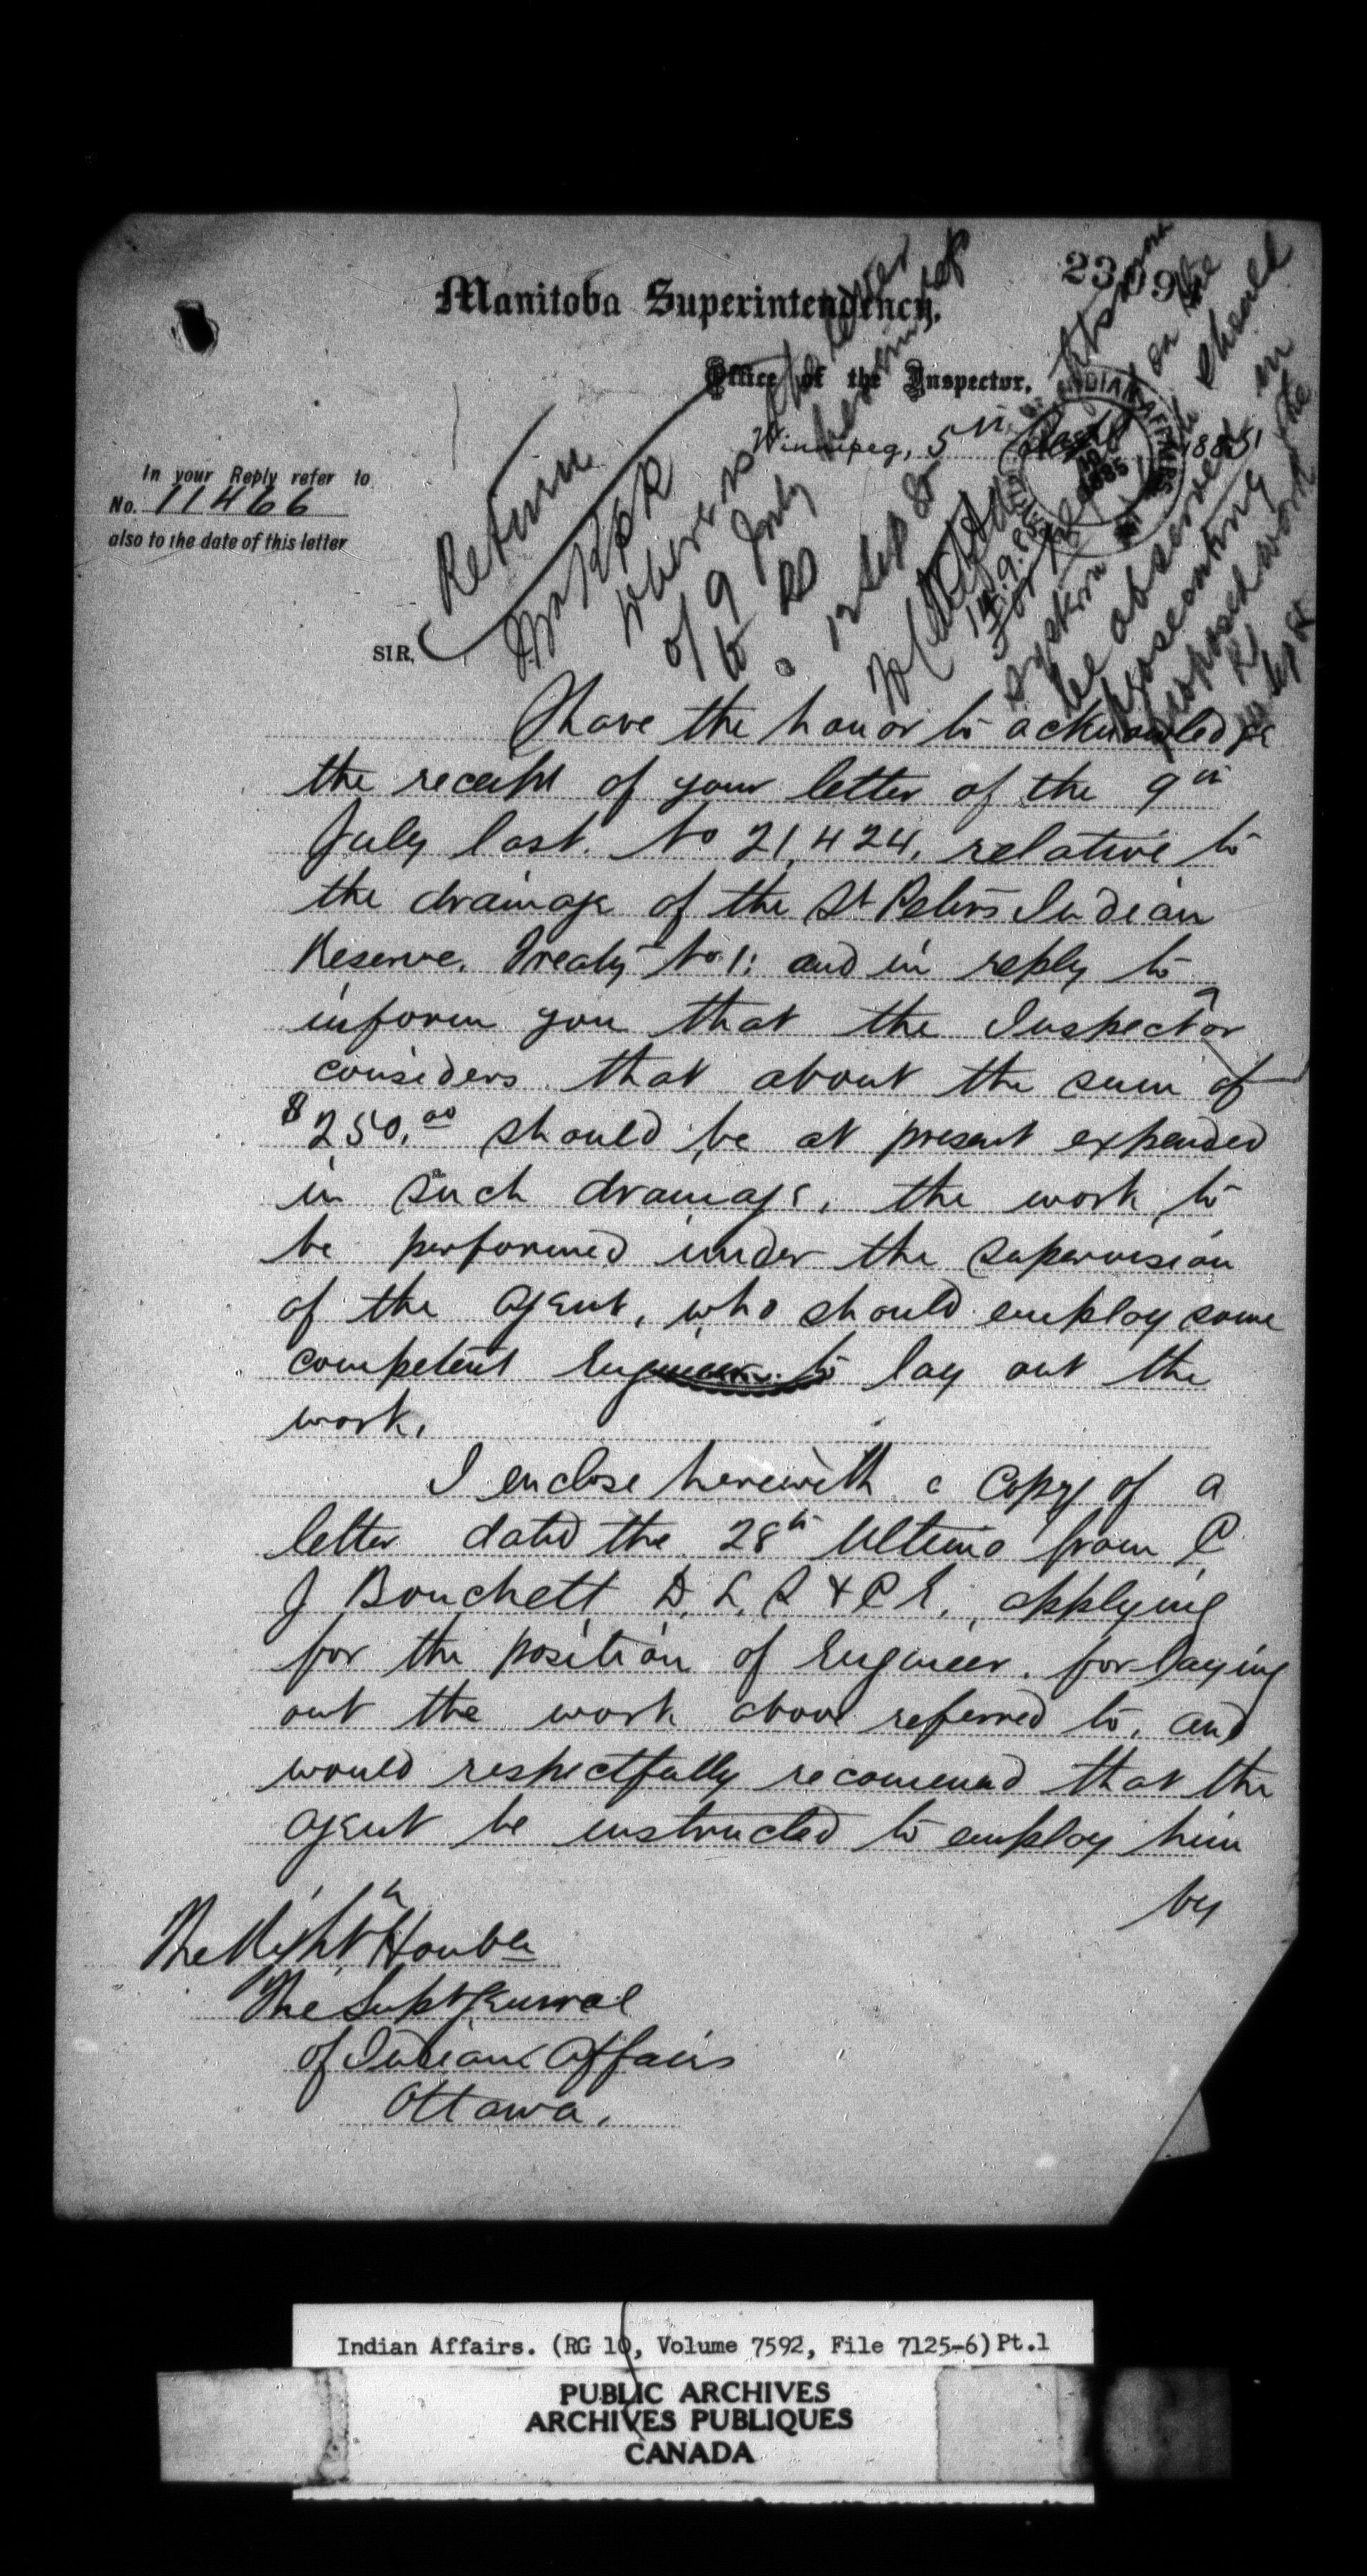 Manitoba Superintendency.
Office of the Inspector,
Winnipeg, 5th Sept 1885
In your Reply refer to
No. 11466
also to the date of this letter
Return
where is the letter
of 9 July
12 Sep 85
14.9.85
system
be observed in
prosecuting the
proposed work
SIR,
I have the honor to acknowledge
the receipt of your letter of the 9th
July last. No 21,424, relative to
the drainage of the St Peters Indian
Reserve. Treaty No. 1: and in reply to
inform you that the Inspector
considers that about the sum of
$250.00 should be at present expended
in such drainage, the work to
be performed under the supervision
of the Agent, who should employ some
competent Engineer to lay out the
work.
I enclose herewith a Copy of a
letter dated the 28th Ultimo from C
J Bouchett D. L. S & C E., applying
for the position of Engineer, for laying
out the work above referred to, and
would respectfully recommend that the
Agent be instructed to employ him
by
The Right Honble
The Supt General
of Indian Affairs
Ottawa.
Indian Affairs. (RG 10, Volume 7592, File 7125-6) Pt.1
PUBLIC ARCHIVES
ARCHIVES PUBLIQUES
CANADA